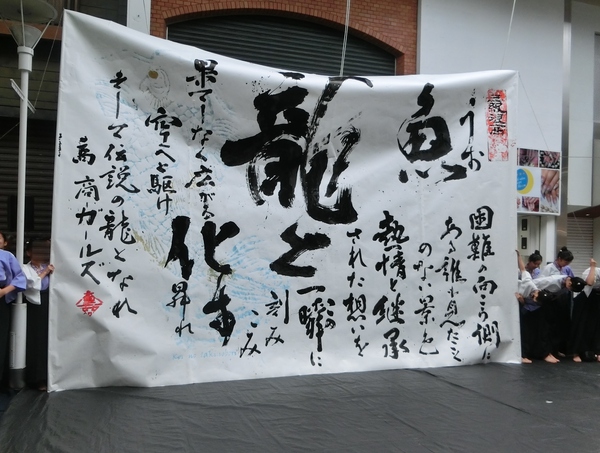 魚
困難の向こう側に
ある誰も見たこと
のない景色
熱情と継承
された想いを
一瞬に
刻み
こみ
龍と
化す
果てしなく広がる
空へと駆け
昇れ
そして伝説の龍となれ
商ガールズ